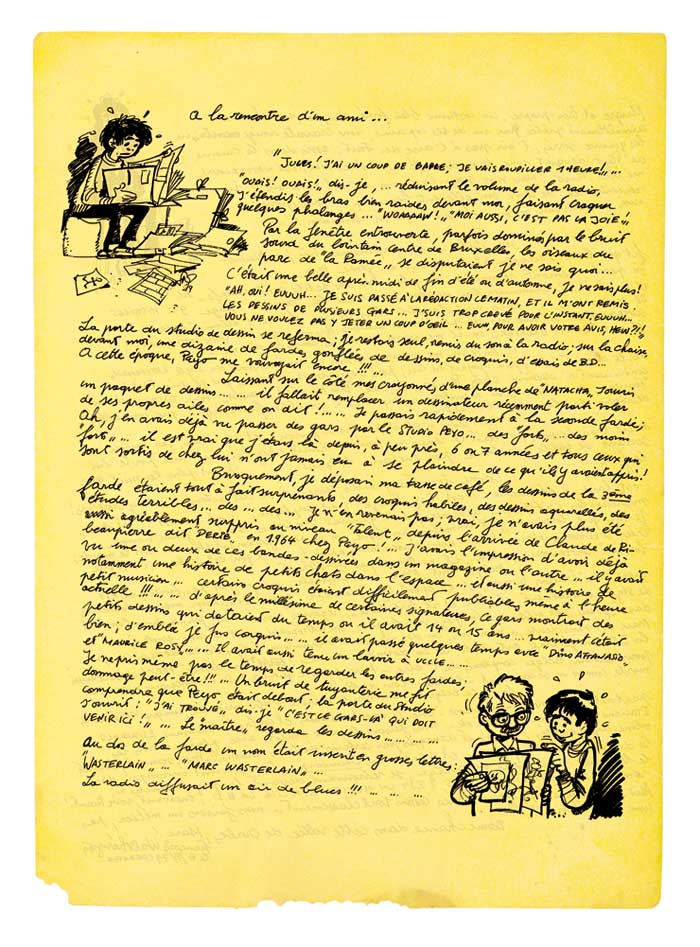 A la rencontre d'un ami...
"JULES! J'AI UN COUP DE BARRE; JE VAIS ROUPILLER 1 HEURE!„...
"OUAIS! OUAIS!„ dis-je, ... réduisant le volume de la radio,
j'étendis les bras bien raides devant moi, faisant craquer
quelques phalanges... "WOAAAAW!„ "MOI AUSSI, C'EST PAS LA JOIE!„
Par la fenêtre entrouverte, parfois dominés par le bruit
sourd du lointain centre de Bruxelles, les oiseaux du
parc de "la Ramée„ se disputaient je ne sais quoi...
C'était une belle après-midi de fin d'été ou d'automne, je ne sais plus!
"AH, OUI! EUUUH... JE SUIS PASSÉ À LA RÉDACTION CE MATIN, ET IL M'ONT REMIS
LES DESSINS DE PLUSIEURS GARS... J'SUIS TROP CREVÉ POUR L'INSTANT, EUUUH...
VOUS NE VOULEZ PAS Y JETER UN COUP D'ŒIL... EUUH, POUR AVOIR VOTRE AVIS, HEIN?!„
La porte du studio de dessin se referma; je restais seul, remis du son à la radio; sur la chaise,
devant moi, une dizaine de fardes gonflées de dessins, de croquis, d'essais de B.D...
A cette époque, Peyo me vouvoyait encore!!!...
Laissant sur le côté mes crayonnés d'une planche de "NATACHA„ j'ouvris
un paquet de dessins... ... il fallait remplacer un dessinateur récemment parti voler
de ses propres ailes comme on dit!... ... Je passais rapidement à la seconde farde;
Ah, j'en avais déjà vu passer des gars par le STUDIO PEYO... des "forts„... des moins
"forts„... il est vrai que j'étais là depuis, à peu près, 6 ou 7 années et tous ceux qui
sont sortis de chez lui n'ont jamais eu à se plaindre de ce qu'il y avaient appris!
Brusquement, je déposai ma tasse de café, les dessins de la 3ème
farde étaient tout à fait surprenants, des croquis habiles, des dessins aquarellés, des
études terribles... des... des... Je n'en revenais pas; vrai, je n'avais plus été
aussi agréablement surpris au niveau "talent„ depuis l'arrivée de Claude de Ri-
beaupierre dit "DERIB„ en 1964 chez Peyo!... ... J'avais l'impression d'avoir déjà
vu une ou deux de ces bandes-dessinées dans un magazine ou l'autre... il y avait
notamment une histoire de petits chats dans l'espace... et aussi une histoire de
petit musicien... certains croquis étaient difficilement publiables même à l'heure
actuelle!!!... ... d'après le millésime de certaines signatures, ce gars montrait des
petits dessins qui dataient du temps ou il avait 14 ou 15 ans... vraiment c'était
bien; d'emblée je fus conquis... ... il avait passé quelques temps avec "DINO ATTANASIO„
et "MAURICE ROSY„... ... Il avait aussi tenu un lavoir à UCCLE... ...
Je repris même pas le temps de regarder les autres fardes;
dommage peut-être!!!... Un bruit de tuyauterie me fit
comprendre que Peyo était debout; la porte du studio
s'ouvrit; "J'AI TROUVÉ„ dis-je "C'EST CE GARS-LÀ QUI DOIT
VENIR ICI!„... ... Le "maître„ regarda les dessins... ... ... ...
Au dos de la farde un nom était inscrit en grosses lettres:
"WASTERLAIN„... ... "MARC WASTERLAIN„...
La radio diffusait un air de blues!!!... ... ...